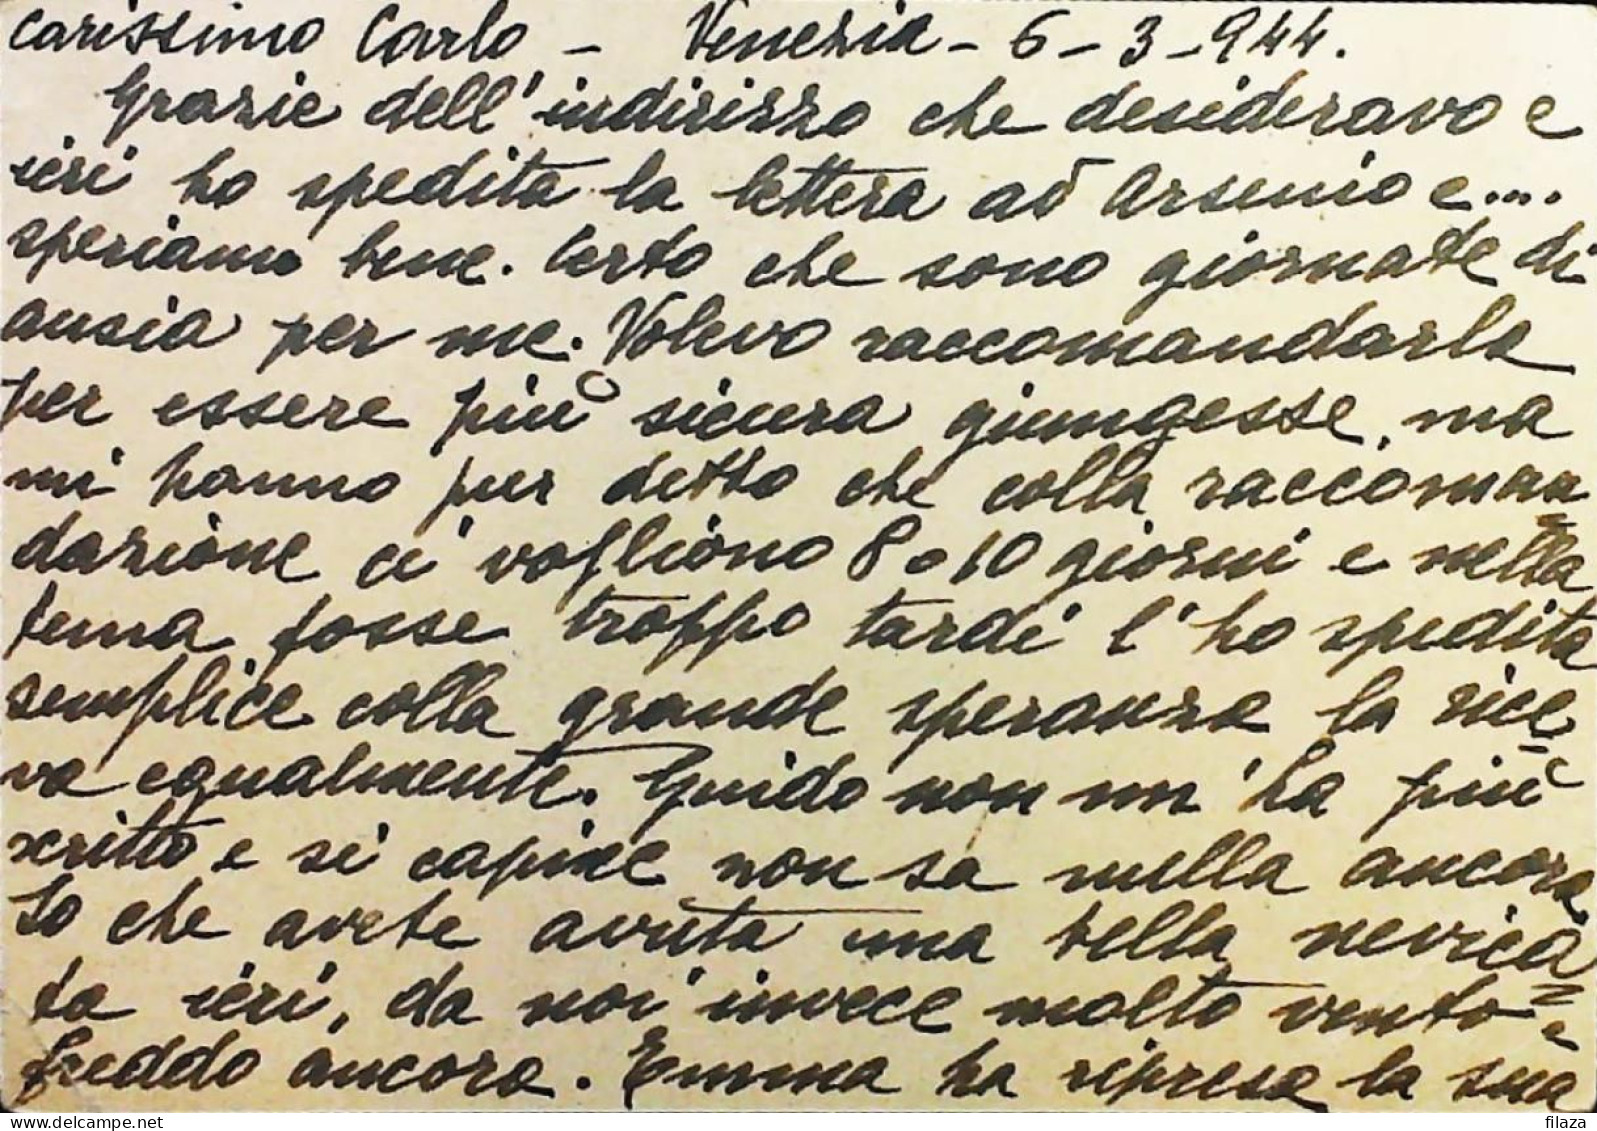 carissimo Carlo - Venezia - 6 - 3 - 944.
Grazie dell'indirizzo che desideravo e
ieri ho spedita la lettera ad Arsenio e....
speriamo bene. Certo che sono giornate di
ansia per me. Volevo raccomandarla
per essere più sicura giungesse, ma
mi hanno pur detto che colla raccoman=
dazione ci vogliono 8 o 10 giorni e nella
tema fosse troppo tardi l'ho spedita
semplice colla grande speranza la rice=
va egualmente. Guido non m'ha più
scritto e si capisce non sa nulla ancora.
So che avete avuta una bella nevica=
ta ieri, da noi invece molto vento e
freddo ancora. Emma ha ripreso la sua
delcampe.net
filaza